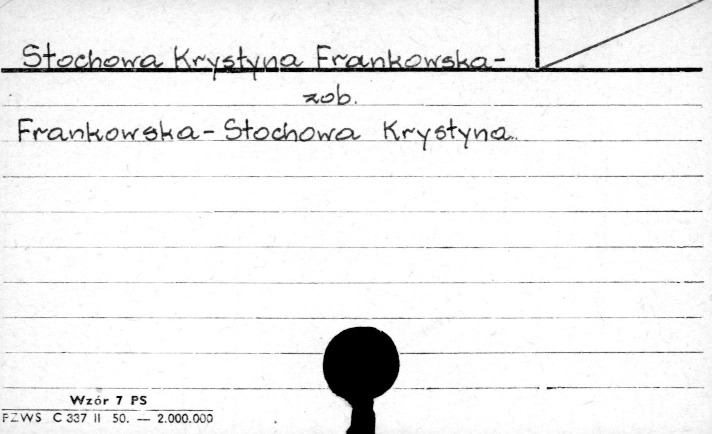 Stochowa Krystyna Frankowska-
zob.
Frankowska-Stochowa Krystyna.
Wzór 7 PS
PZWS C 337 II 50. — 2.000.000